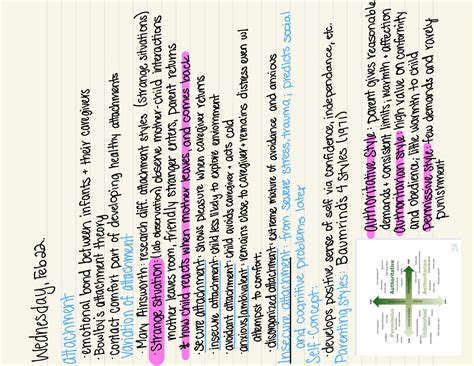 Wednesday, Feb 22
attachment
· emotional bond between infants + their caregivers
· Bowlby's attachment theory
· contact comfort part of developing healthy attachments
Variation of attachment
· Mary Ainsworth: research diff. attachment styles (strange situations)
· Strange situation: (lab observation) observe mother-child interactions
mother leaves room, friendly stranger enters, parent returns
* how child reacts when mother leaves and comes back
· secure attachment: shows pleasure when caregiver returns
· insecure attachment: child less likely to explore environment
· avoidant attachment: child avoids caregiver + acts cold
· anxious/ambivalent: remains close to caregiver + remains distress even w/
attempts to comfort.
· disorganized attachment: extreme mixture of avoidance and anxious
Insecure attachment: from severe stress, trauma; predicts social
and cognitive problems later
Self-Concept:
· develops positive sense of self via confidence, independence, etc.
Parenting styles: Baumrind's 4 Styles (1971)
authoritative style: parent gives reasonable
demands + consistent limits; warmth + affection
authoritarian style: high value on conformity
and obedience; little warmth to child
Permissive style: few demands and rarely
punishment
Authoritative
Authoritarian
Permissive
28